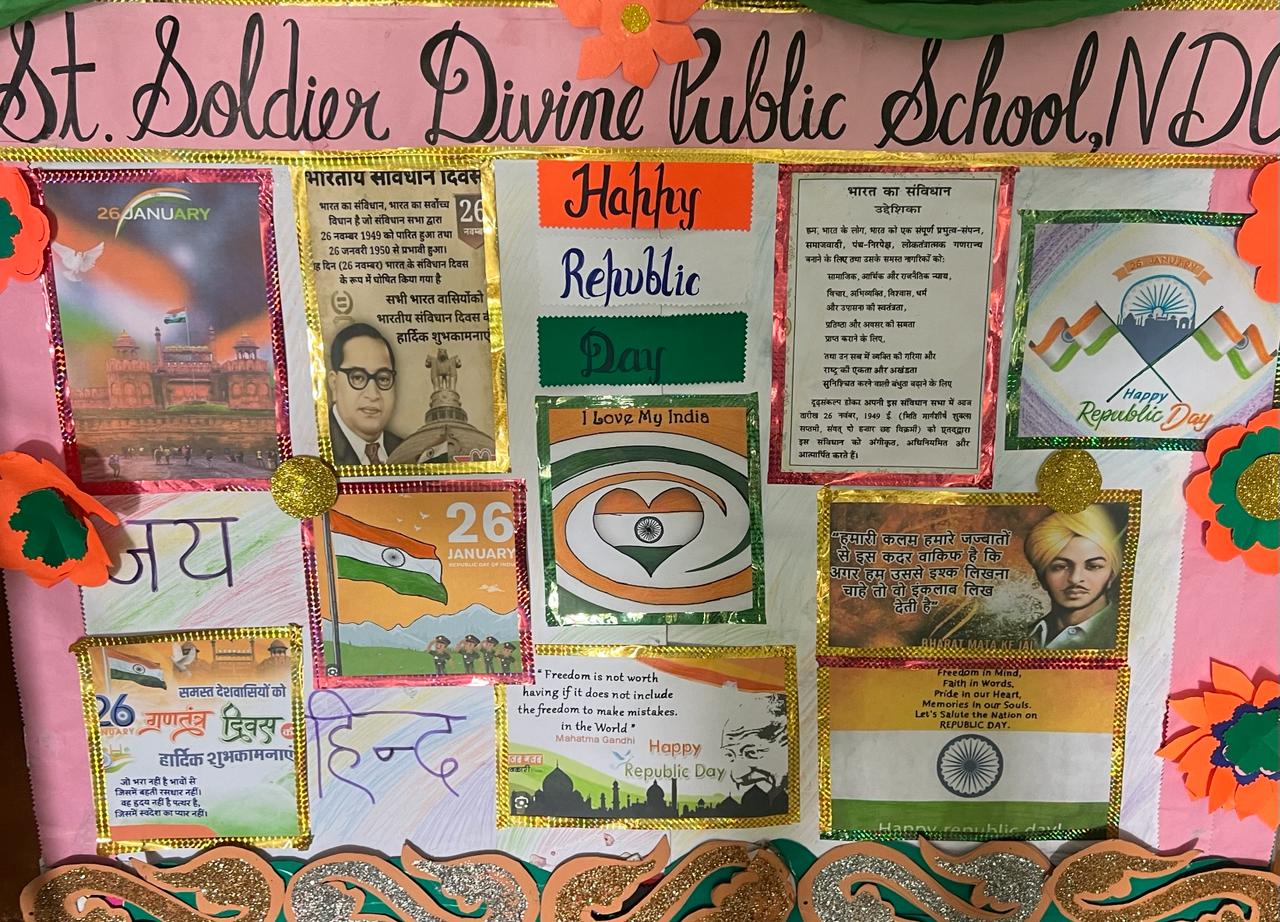 St. Soldier Divine Public School, NDC
26 JANUARY
भारतीय संविधान दिवस
भारत का संविधान, भारत का सर्वोच्च
विधान है जो संविधान सभा द्वारा
26 नवम्बर 1949 को पारित हुआ तथा
26 जनवरी 1950 से प्रभावी हुआ।
दिन (26 नवम्बर) भारत के संविधान दिवस
के रूप में घोषित किया गया है
26
नवम्बर
सभी भारत वासियोंको
भारतीय संविधान दिवस
हार्दिक शुभकामनाएं
Happy
Republic
Day
I Love My India
भारत का संविधान
उद्देशिका
हम, भारत के लोग, भारत को एक संपूर्ण प्रभुत्व-संपन्न,
समाजवादी, पंथ-निरपेक्ष, लोकतंत्रात्मक गणराज्य
बनाने के लिए तथा उसके समस्त नागरिकों को:
सामाजिक, आर्थिक और राजनैतिक न्याय,
विचार, अभिव्यक्ति, विश्वास, धर्म
और उपासना की स्वतंत्रता,
प्रतिष्ठा और अवसर की समता
प्राप्त कराने के लिए,
तथा उन सब में व्यक्ति की गरिमा और
राष्ट्र की एकता और अखंडता
सुनिश्चित करने वाली बंधुता बढ़ाने के लिए
दृढ़संकल्प होकर अपनी इस संविधान सभा में आज
तारीख 26 नवंबर, 1949 ई. (मिति मार्गशीर्ष शुक्ला
सप्तमी, संवत् दो हजार छह विक्रमी) को एतद्द्वारा
इस संविधान को अंगीकृत, अधिनियमित और
आत्मार्पित करते हैं।
26 JANUARY
Happy
Republic Day
जय
26
JANUARY
REPUBLIC DAY OF INDIA
"हमारी कलम हमारे जज्बातों
से इस कदर वाकिफ है कि
अगर हम उससे इश्क लिखना
चाहे तो वो इंकलाब लिख
देती है"
BHARAT MATA KE LAL
26
समस्त देशवासियों को
गणतंत्र दिवस की
हार्दिक शुभकामनाएं
जो भरा नहीं है भावों से
जिसमें बहती रसधार नहीं।
वह हृदय नहीं है पत्थर है,
जिसमें स्वदेश का प्यार नहीं।
हिन्द
"Freedom is not worth
having if it does not include
the freedom to make mistakes.
in the World"
Mahatma Gandhi
Happy
Republic Day
Freedom in Mind,
Faith in Words,
Pride in our Heart,
Memories in our Souls.
Let's Salute the Nation on
REPUBLIC DAY.
Happy republic day!